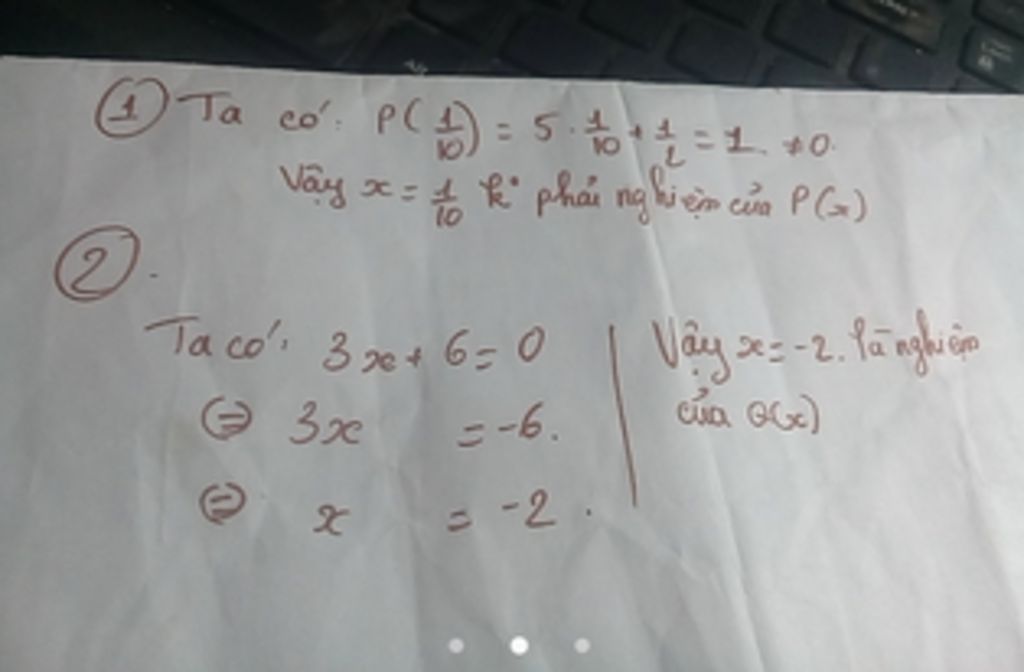 ① Ta có: P(1/10) = 5 · 1/10 + 1/2 = 1 ≠ 0.
Vậy x = 1/10 k° phải nghiệm của P(x)
②.
Ta có: 3x + 6 = 0
⇔ 3x = -6.
⇔ x = -2.
Vậy x = -2. là nghiệm
của Q(x)